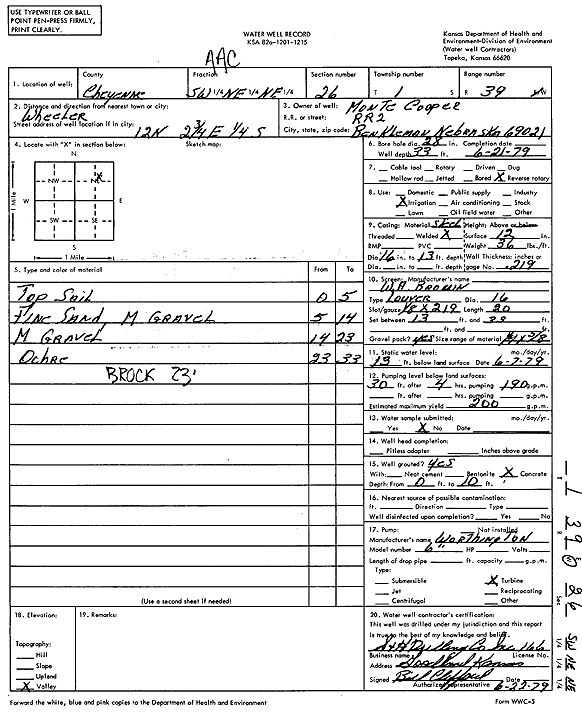 USE TYPEWRITER OR BALL
POINT PEN-PRESS FIRMLY,
PRINT CLEARLY.
WATER WELL RECORD
KSA 82a-1201-1215
Kansas Department of Health and
Environment-Division of Environment
(Water well Contractors)
Topeka, Kansas 66620
AAC
1. Location of well: County Fraction Section number Township number Range number
Cheyenne SW 1/4 NE 1/4 NE 1/4 26 T 1 S R 39 W
2. Distance and direction from nearest town or city:
Wheeler
Street address of well location if in city:
12N 2 3/4 E 1/4 S
3. Owner of well: Monte Cooper
R.R. or street: RR2
City, state, zip code: Benkleman Nebraska 69021
4. Locate with "X" in section below: Sketch map:
N
NW X NE
W E
SW SE
S
1 Mile
1 Mile
6. Bore hole dia. 28 in. Completion date
Well depth 33 ft. 6-21-79
7. Cable tool Rotary Driven Dug
Hollow rod Jetted Bored X Reverse rotary
8. Use: Domestic Public supply Industry
X Irrigation Air conditioning Stock
Lawn Oil field water Other
9. Casing: Material Steel Height: Above or below
Threaded Welded X Surface 12 in.
RMP PVC Weight 36 lbs./ft.
Dia. 16 in. to 13 ft. depth Wall Thickness: inches or
Dia. in. to ft. depth gage No. .219
5. Type and color of material From To
Top Soil 0 5
Fine Sand M Gravel 5 14
M Gravel 14 23
Ochre 23 33
BROCK 23'
10. Screen: Manufacturer's name
W.A. Brown
Type Louver Dia. 16
Slot/gauze 1/8 X 219 Length 20
Set between 13 ft. and 33 ft.
ft. and ft.
Gravel pack? yes Size range of material
11. Static water level: mo./day/yr.
13 ft. below land surface Date 6-7-79
12. Pumping level below land surfaces:
30 ft. after 4 hrs. pumping 190 g.p.m.
ft. after hrs. pumping g.p.m.
Estimated maximum yield 200 g.p.m.
13. Water sample submitted: mo./day/yr.
Yes X No Date
14. Well head completion:
Pitless adapter Inches above grade
15. Well grouted? yes
With: Neat cement Bentonite X Concrete
Depth: From 0 ft. to 10 ft.
16. Nearest source of possible contamination:
ft. Direction Type
Well disinfected upon completion? Yes No
17. Pump: Not installed
Manufacturer's name Worthington
Model number 6" HP Volts
Length of drop pipe ft. capacity g.p.m.
Type:
Submersible X Turbine
Jet Reciprocating
Centrifugal Other
(Use a second sheet if needed)
18. Elevation:
Topography:
Hill
Slope
Upland
X Valley
19. Remarks:
20. Water well contractor's certification:
This well was drilled under my jurisdiction and this report
is true to the best of my knowledge and belief.
Drilling Co Inc 166
Business name License No.
Address Goodland Kansas
Signed Bill Date 6-22-79
Authorized representative
1 39 W 26 Sec SW NE NE
1/4 1/4 1/4
Forward the white, blue and pink copies to the Department of Health and Environment
Form WWC-5